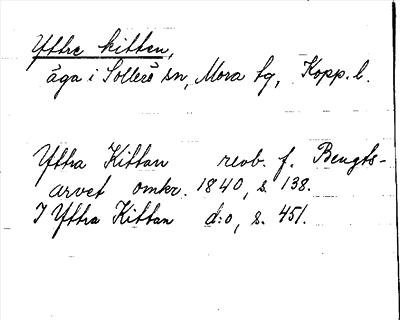 Yttre kitten,
äga i Sollerö sn, Mora tg, Kopp. l.
Yttra Kittan revb. f. Bengts-
arvet omkr. 1840, s 138.
I Yttra Kittan d:o, s. 451.